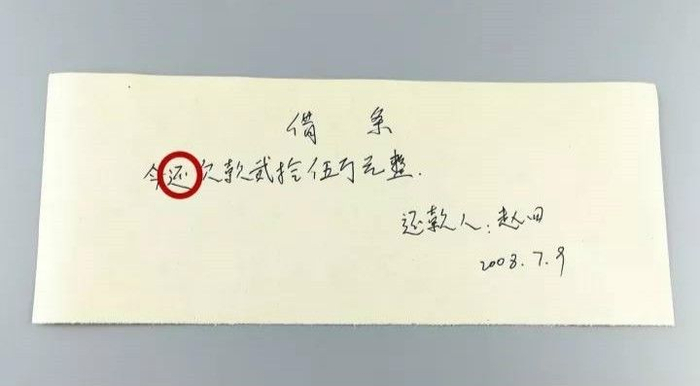 借条
今还欠款贰拾伍万元整.
还款人:赵四
2008.7.9